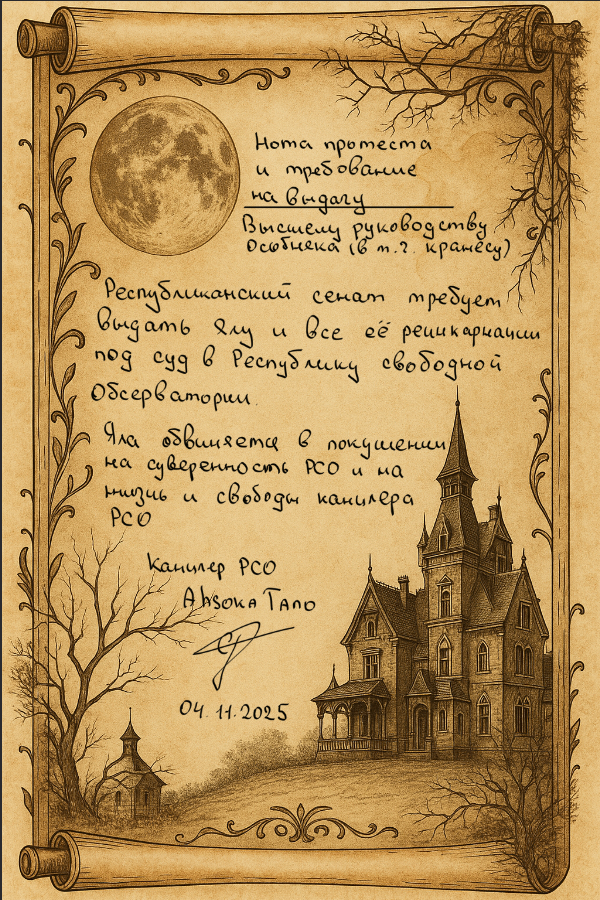 Нота протеста
и требование
на выдачу
Высшему руководству
Особняка (в т.ч. кранесу)
Республиканский сенат требует
выдать Ялу и все её реинкарнации
под суд в Республику свободной
Обсерватории.
Яла обвиняется в покушении
на суверенность РСО и на
жизнь и свободы канцлера
РСО
Канцлер РСО
Ahsoka Tano
04.11.2025